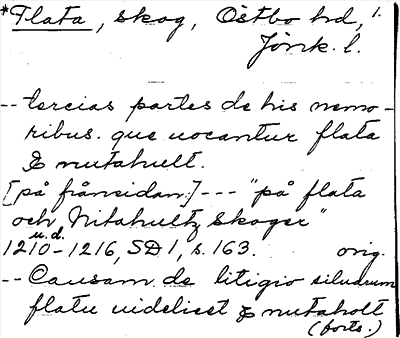 *Flata, skog, Östbo hd, 1.
Jönk. l.
-- tercias partes de his nemo-
ribus. que uocantur flata
& nutahult.
[på frånsidan:] --- "på flata
och Nitahultz Skoger"
u.d.
1210-1216, SD 1, s. 163. orig.
-- Causam de litigio siluarum
flatu uidelicet & nutaholt
(forts.)